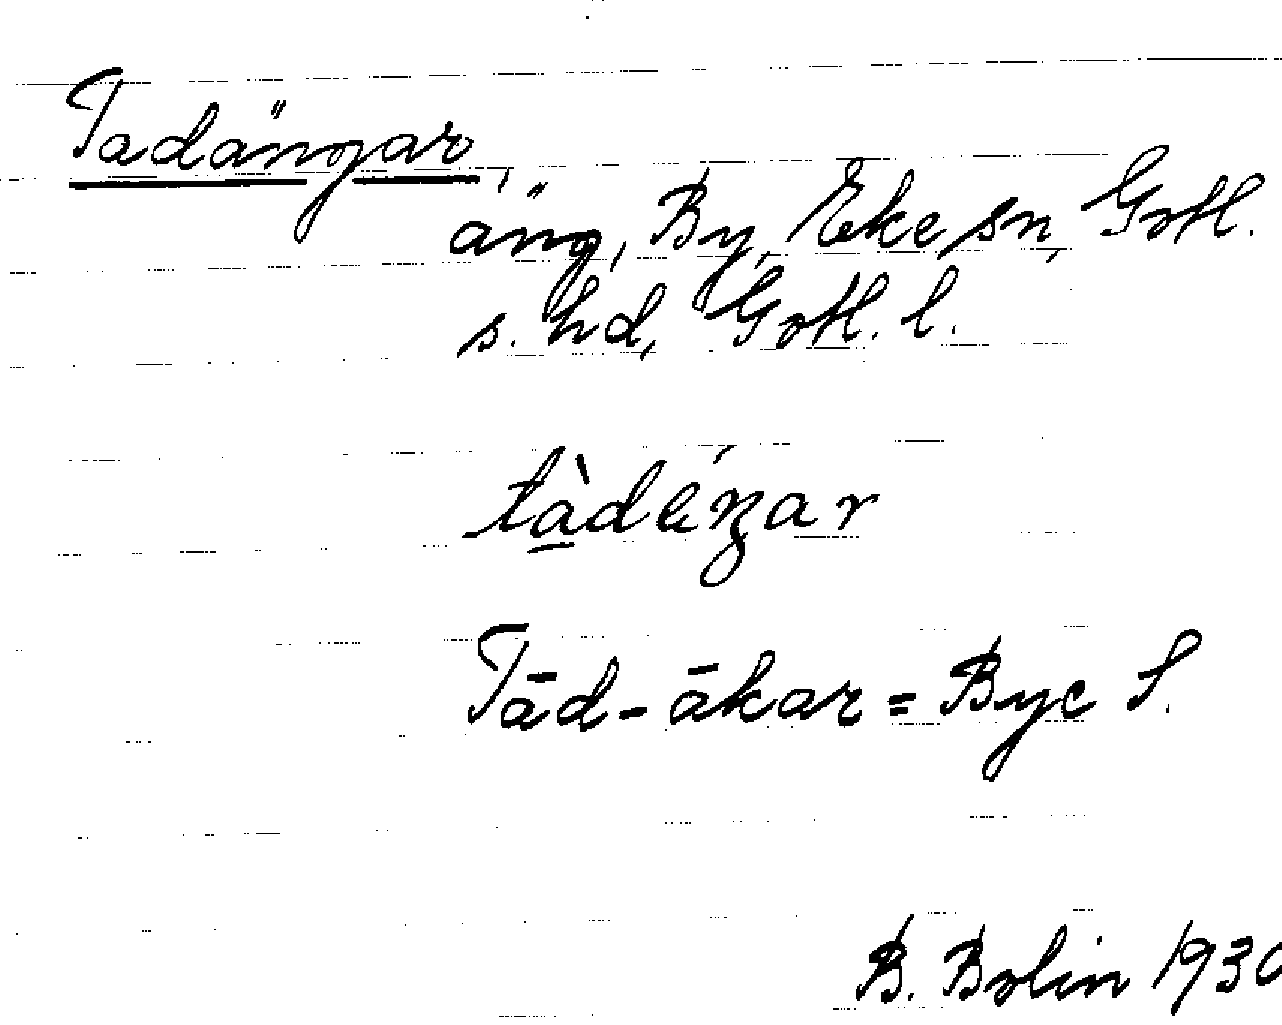 Tadängar
äng, By, Eke sn, Gotl.
s. hd, Gotl. l.
tàdéŋar
Tād-ākar = Bye S.
B. Bolin 1930